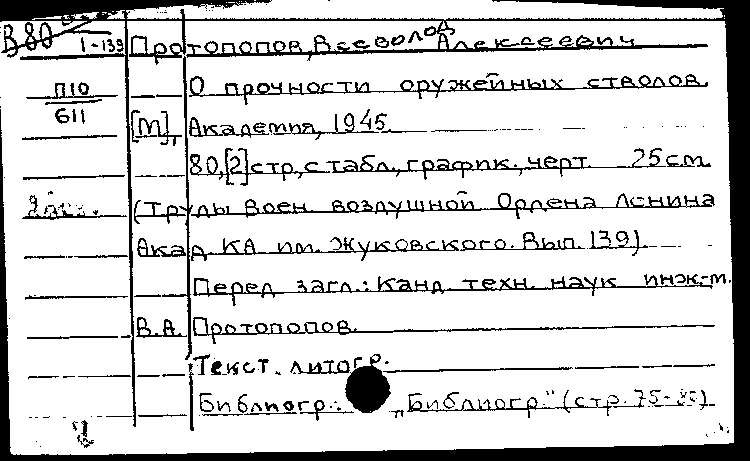 В 80
1-139
Протопопов, Всеволод Алексеевич
П10
611
О прочности оружейных стволов.
[М], Академия, 1945.
80,[2] стр, с табл., график., черт. 25 см.
2 экз.
(Труды Воен. воздушной Ордена Ленина
Акад. КА им. Жуковского. Вып. 139).
Перед загл.: Канд. техн. наук инж-м.
В.А. Протопопов.
Текст. литогр.
Библиогр.: „Библиогр." (стр. 75-